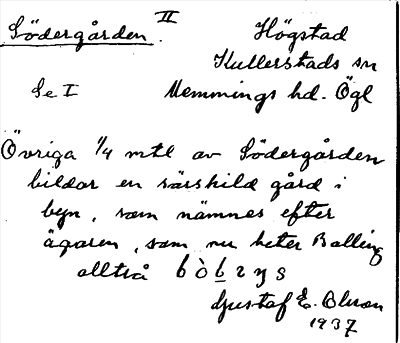 Södergården. II
Högstad
Kullerstads sn
Se I
Memmings hd. Ögl
Övriga 1/4 mtl av Södergården
bildar en särskild gård i
byn, som nämnes efter
ägaren, som nu heter Balling
alltså
Gustaf E. Olsson
1937